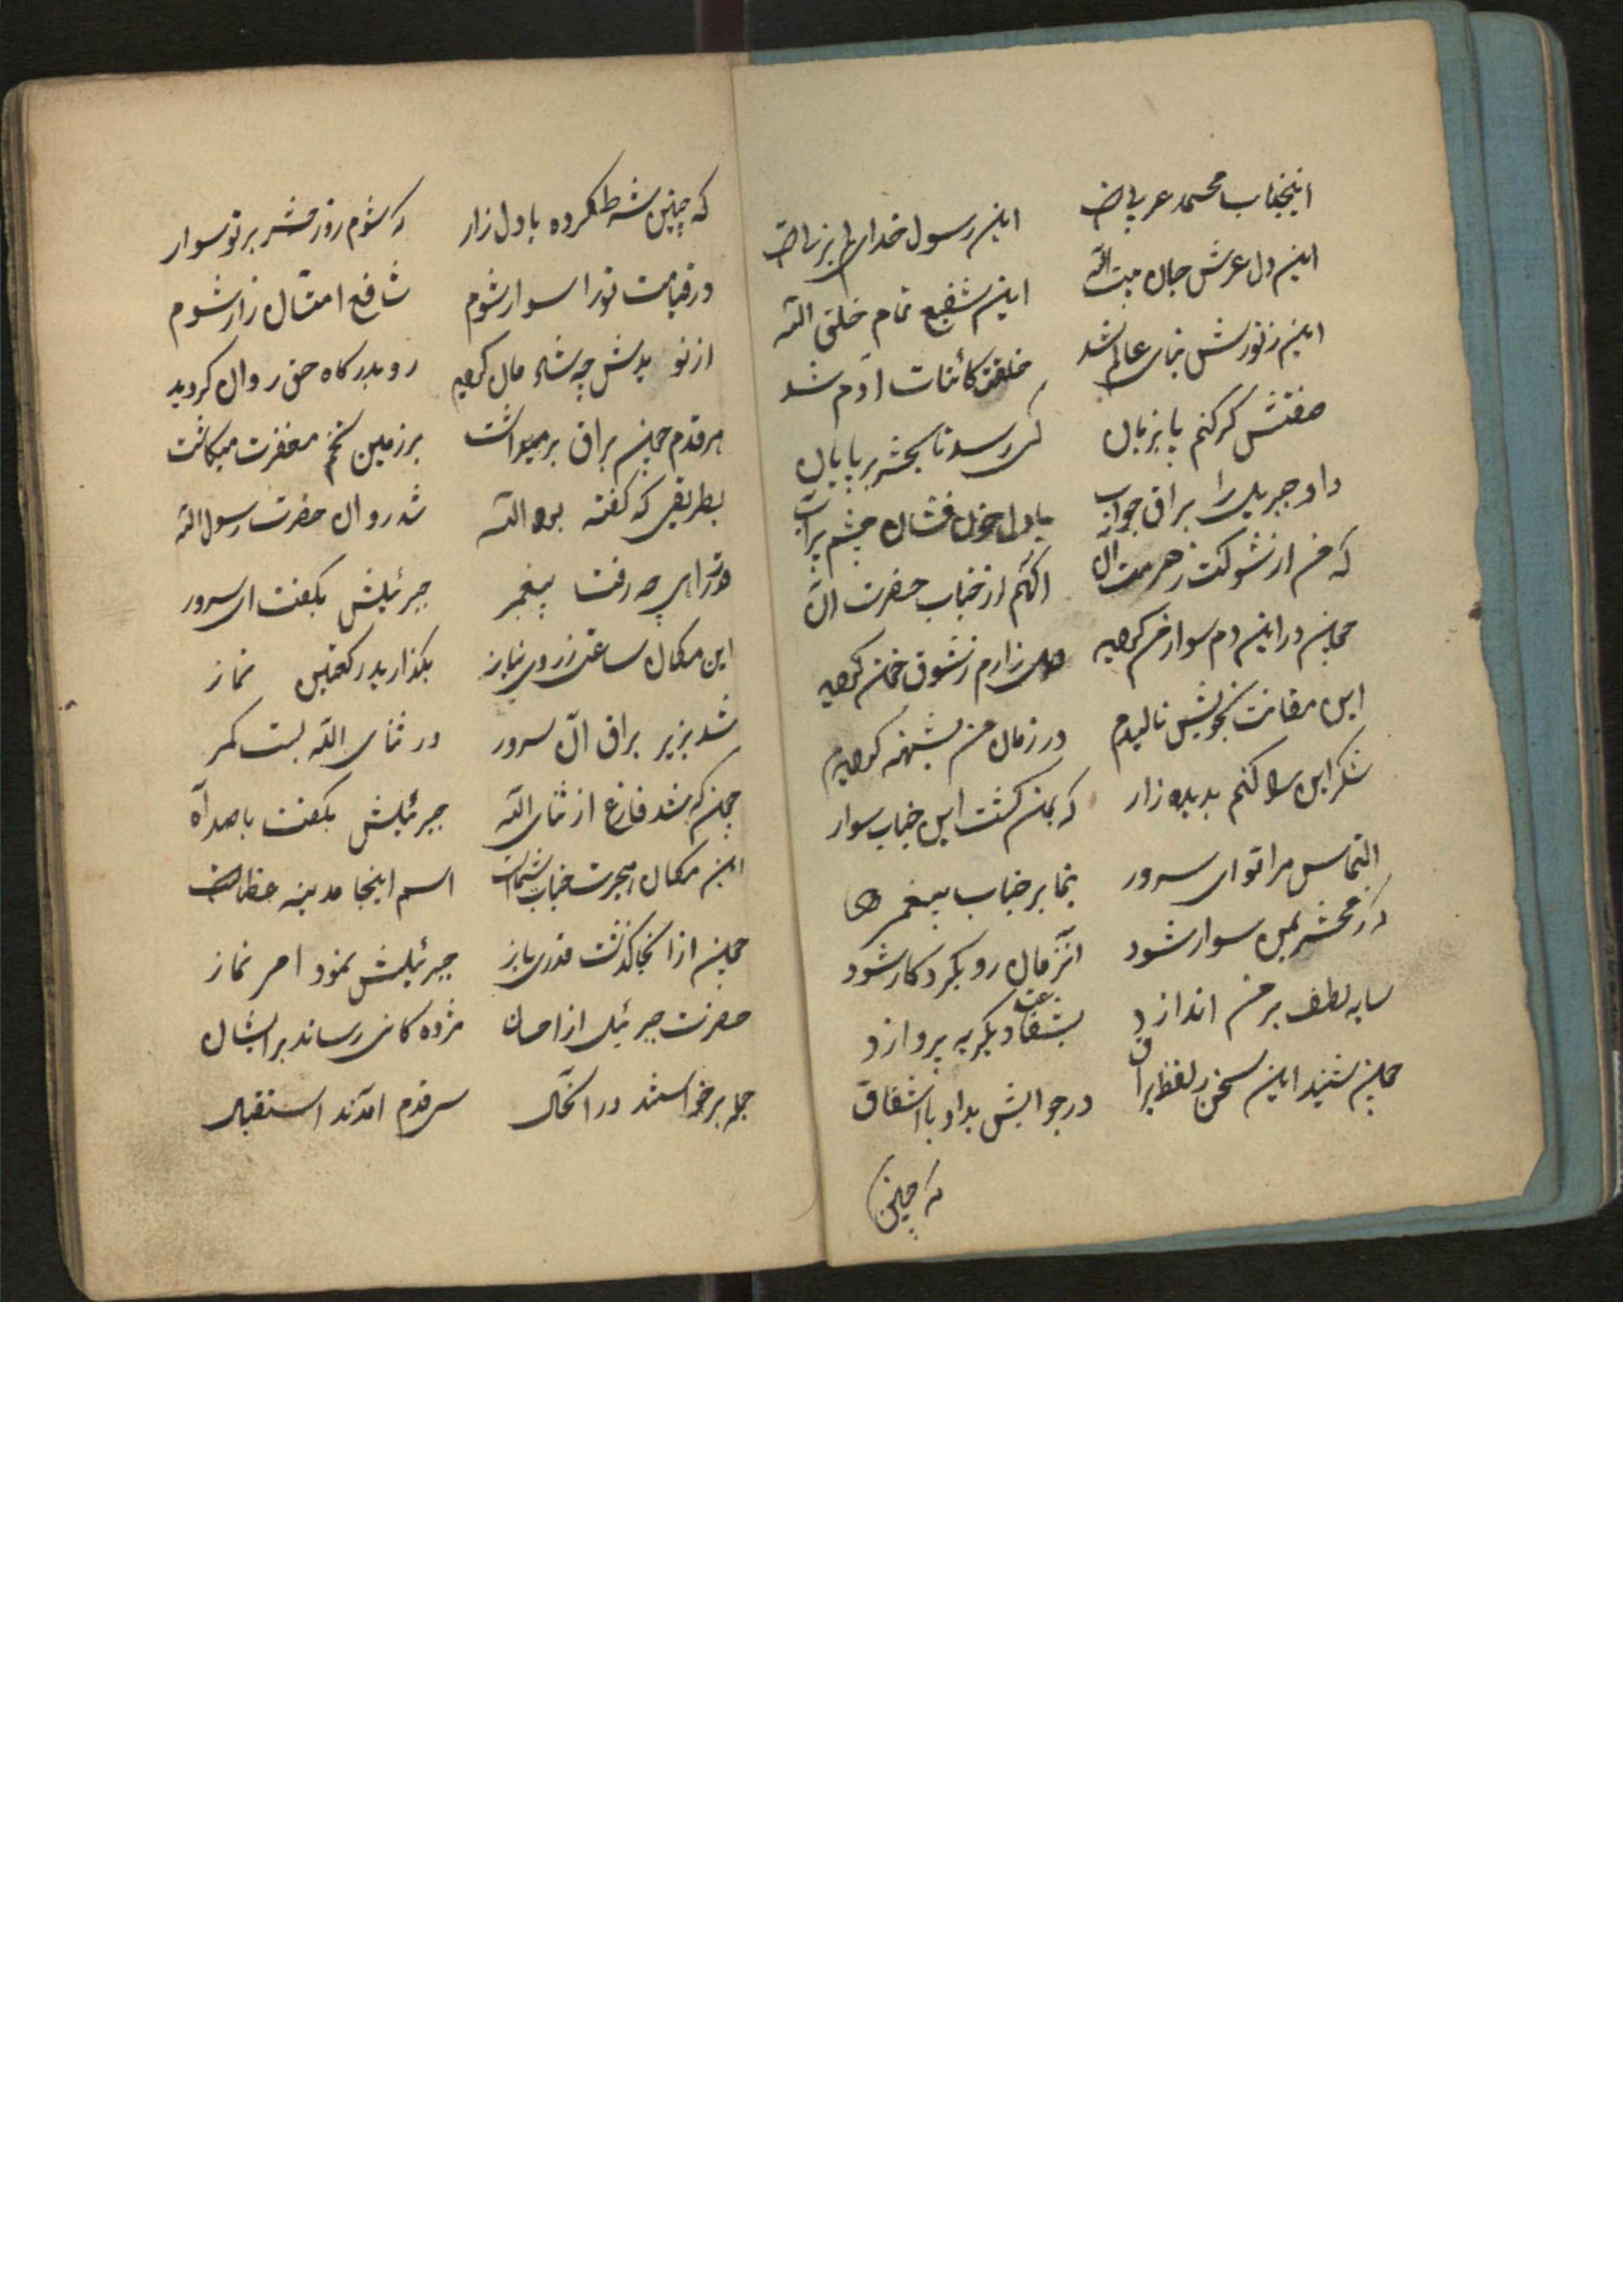 اینجناب محمد عربی است این رسول خدای را نبی است
این دل عرش جان بیت الله این شفیع تمام خلق الله
این ز نورش بنای عالم شد خلقت کائنات آدم شد
صفتش گر کنم بابزبان کی رسد تا بحشر بر پایان
داد جبریل را براق جواب با دل خون فشان چشم پرآب
که من از شوکت ز حرمت آن آگهم از جناب حضرت آن
چون در این دم سوار من گردید دل زارم ز شوق خون گردید
این بخویش نالیدم در زمان من گردیدم
شکر این را کنم بدیده زار که بمن گشت این جناب سوار
التماس مرا تو ای سرور بنما بر جناب پیغمبر
که ز محشر بمن سوار شود آنزمان رو بکردکار شود
سایه لطف بر من اندازد بشفاعت دیگر به پردازد
چون شنید این سخن ز لفظ براق در جوابش بداد با اشفاق
که چنین
که چنین شرط کرده با دل زار که شوم روز محشر بر تو سوار
در قیامت تو را سوار شوم شافع امتان زار شوم
از نو بدنش چه شاد مان گردید رو بدرگاه حق روان گردید
هر قدم چون براق برمیداشت بر زمین تخم مغفرت میکاشت
بطریقی که گفته بود الله شد روان حضرت رسول الله
رفت پیغمبر جبرئیلش بگفت ای سرور
این مکان ساعتی ز روی نیاز بگذارید رکعتین نماز
شد بزیر براق آن سرور در ثنای الله بست کمر
چون که شد فارغ از ثنای الله جبرئیلش بگفت با صد آه
این مکان هجرت جناب شماست اسم اینجا مدینه عظماست
چون از آنجا گذشت قدری باز جبرئیلش نمود امر نماز
حضرت جبرئیل از احسان مژده کانی رساند بر ایشان
جمله برخواستند در آنحال سر قدم آمدند استقبال